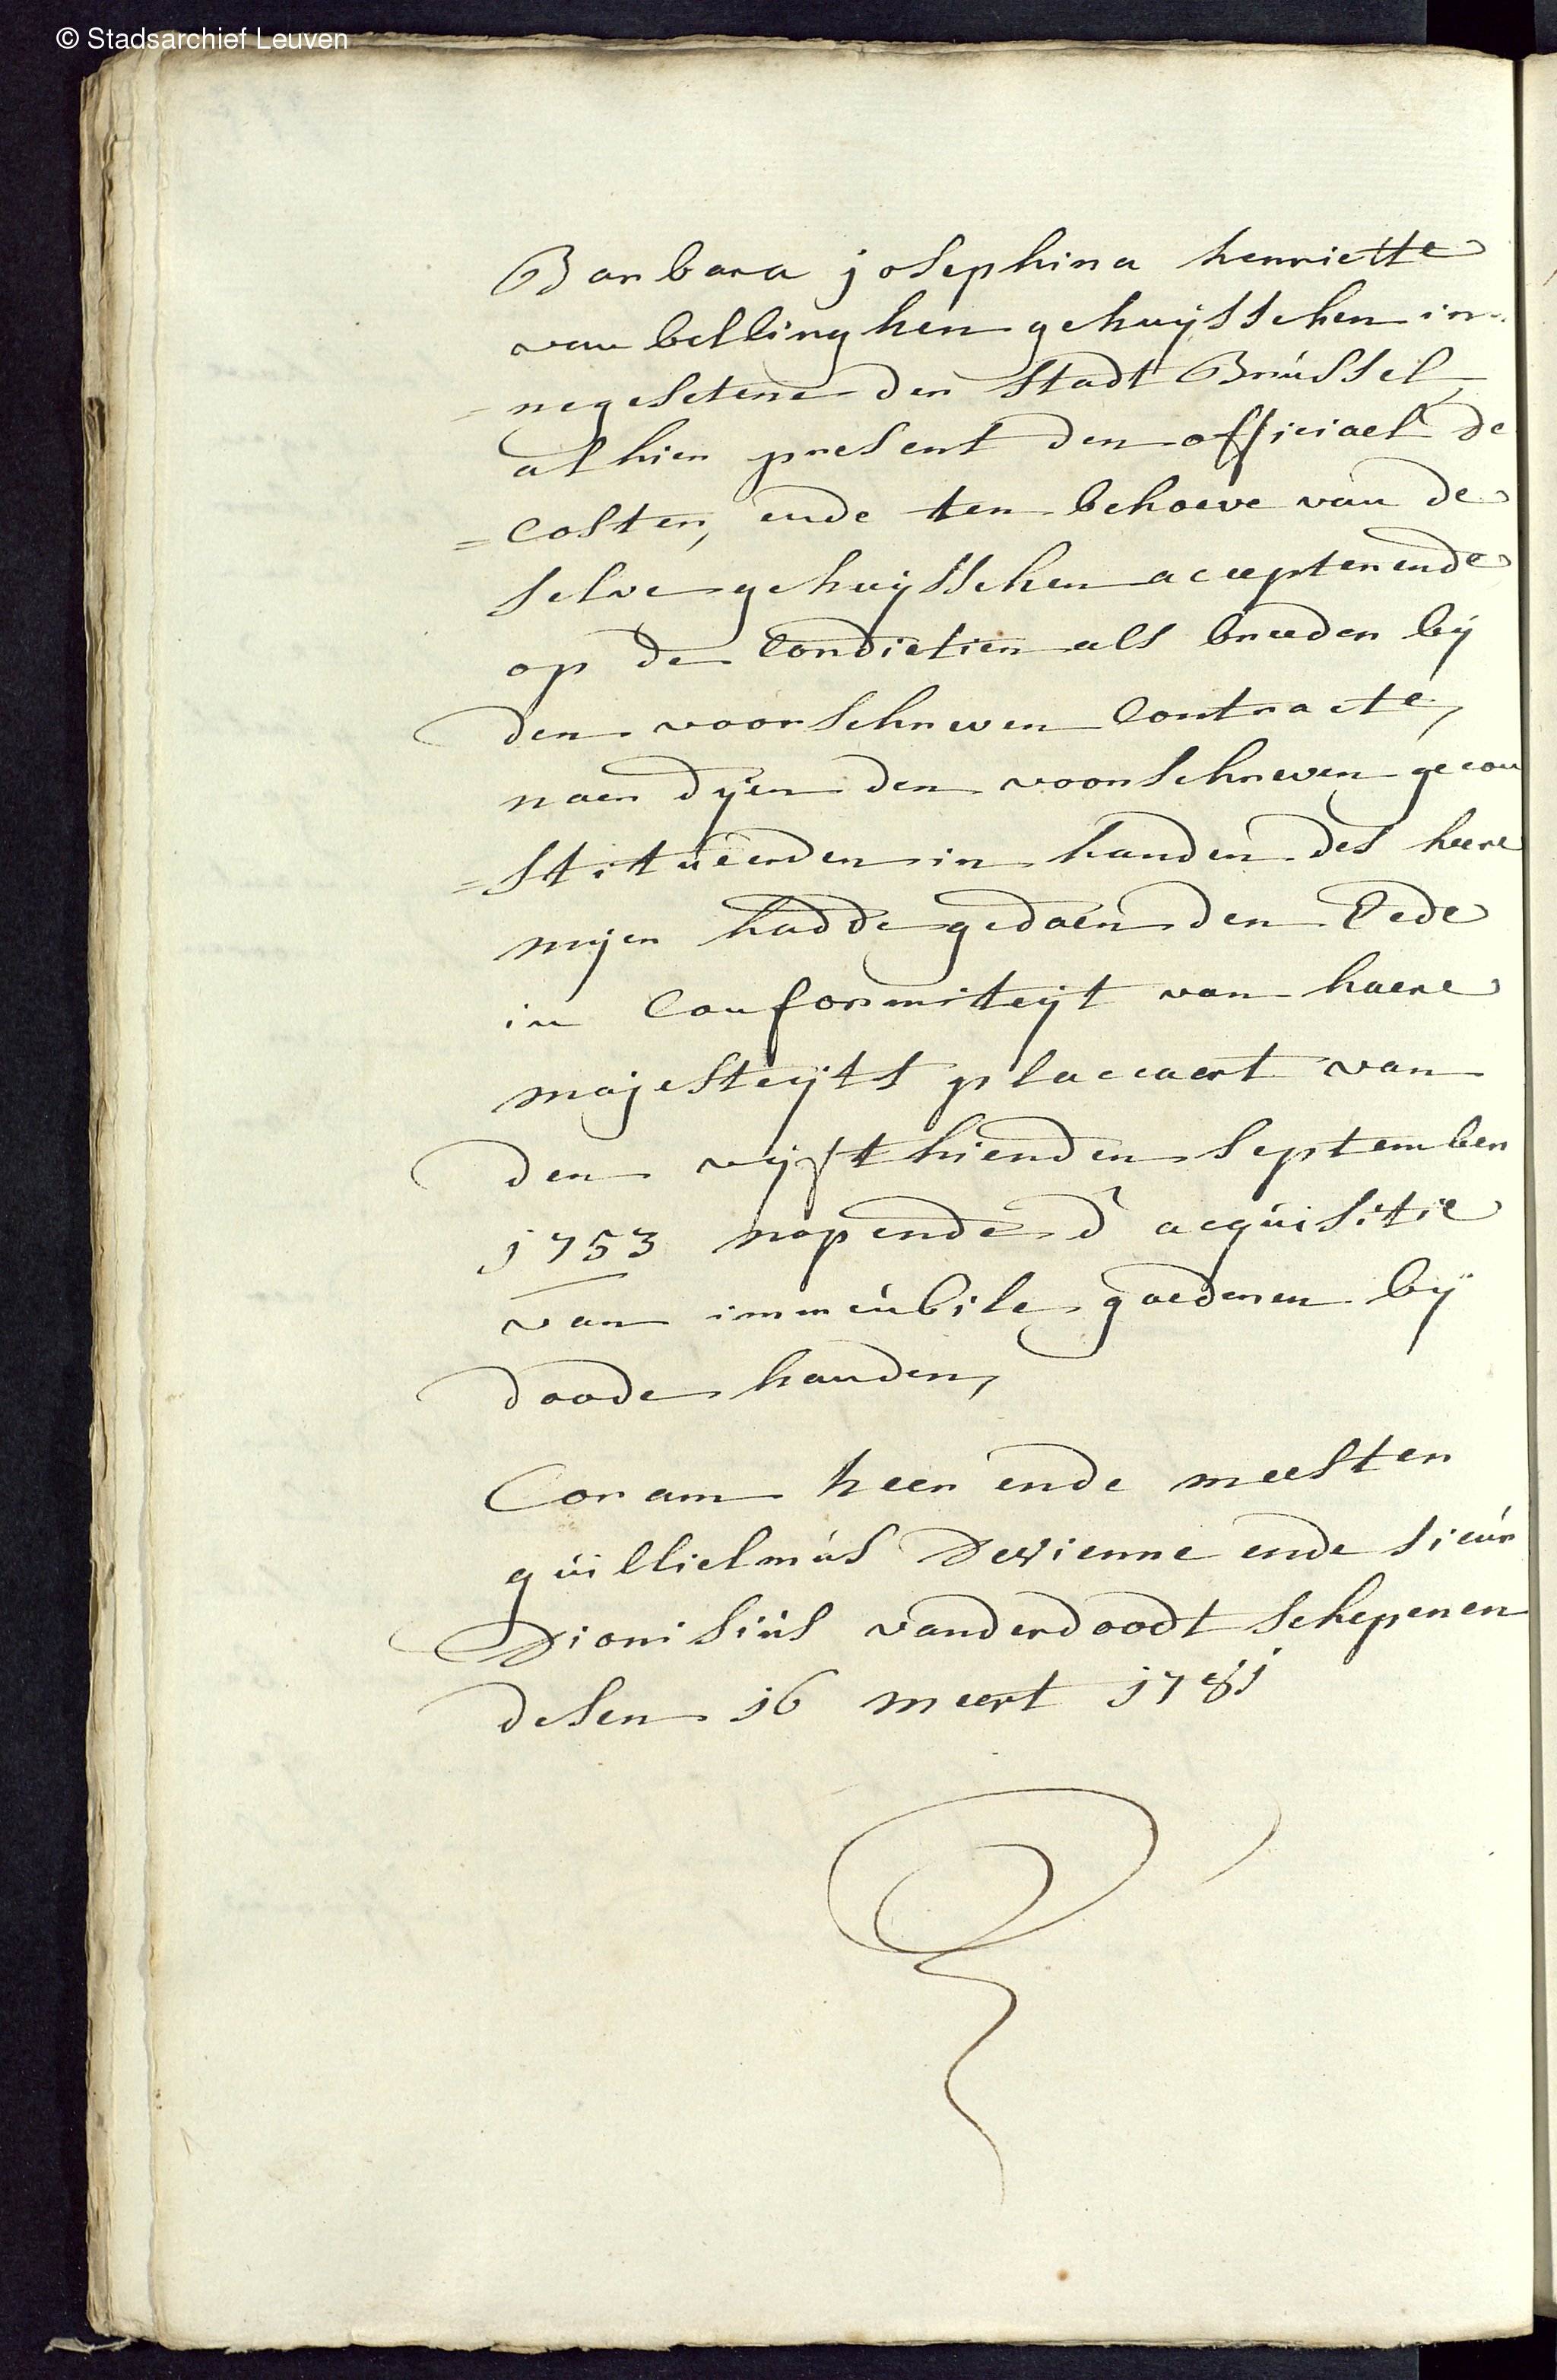 © Stadsarchief Leuven
Barbara josephina henriette
van bellinghen gehuijsschen in-
negesetene der stadt Brússel,
alhier present den officiael de
=Coster, ende ten behoeve van de
selve gehuijsschen accepterende
op de Condietien als breeder bij
den voorschreven Contracte,
naer dijen den voorschreven gecon
=stitueerden in handen des heere
mijer hadde gedaen den Eede
in Conformiteijt van haere
majesteijts placcaert van
den vijfthienden september
1753 rapende d' acquisitie
van immeubile goederen bij
doode handen,
Coram heer ende meester
guillielmús Devienne ende sieur
Dionisiús vanderdoodt schepenen
desen 16 meert 1781